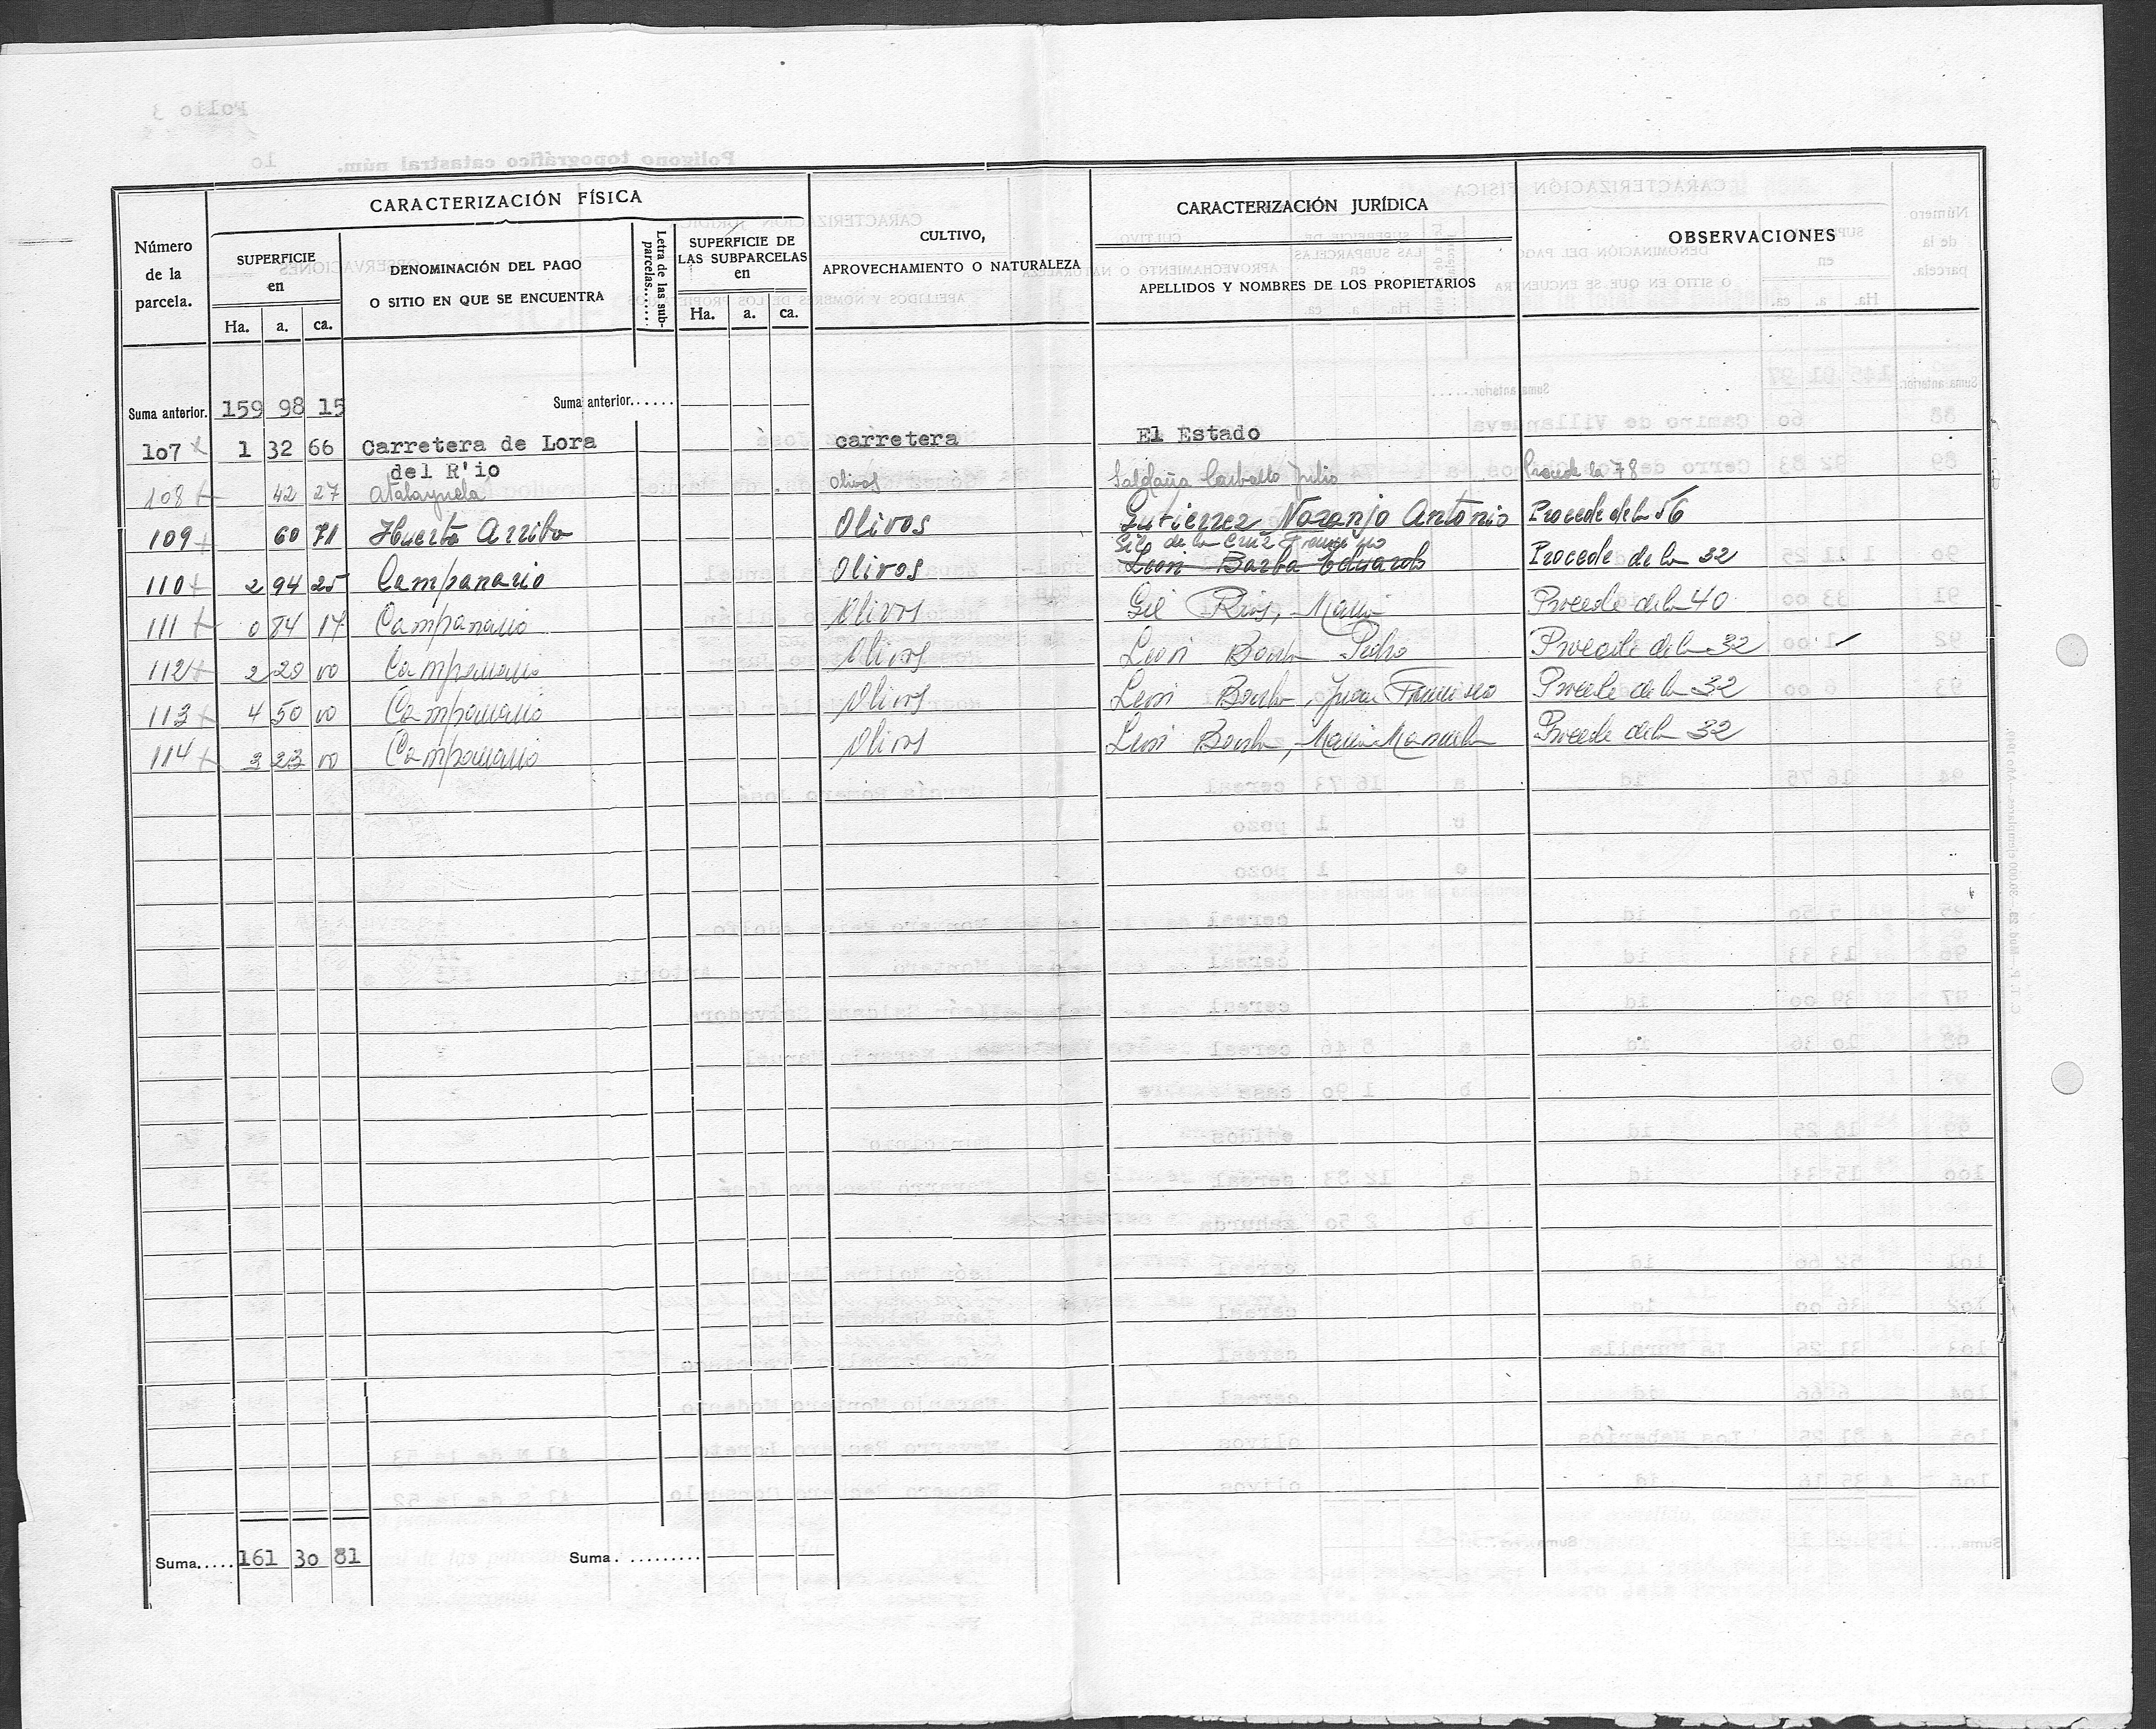 CARACTERIZACIÓN FÍSICA
CARACTERIZACIÓN JURÍDICA
OBSERVACIONES
Número de la parcela.
SUPERFICIE en
Ha. a. ca.
DENOMINACIÓN DEL PAGO
O SITIO EN QUE SE ENCUENTRA
Letra de las sub-parcelas.......
SUPERFICIE DE LAS SUBPARCELAS en
Ha. a. ca.
CULTIVO,
APROVECHAMIENTO O NATURALEZA
APELLIDOS Y NOMBRES DE LOS PROPIETARIOS
Suma anterior. 159 98 15 Suma anterior......
107 1 32 66 Carretera de Lora carretera El Estado
del R'io
108 42 27 Atalayuela Olivos Saldaña Carballo Julio Procede la 78
109 60 71 Huerta Arriba Olivos Gutierrez Naranjo Antonio Procede de la 56
de la Cruz
110 2 94 25 Campanario Olivos Leon Barba Eduardo Procede de la 32
111 0 84 17 Campanario Olivos Gil Rios, Procede de la 40
112 2 20 00 Campanario Olivos Leon Barba Pedro Procede de la 32
113 4 50 00 Campanario Olivos Leon Barba, Juan Francisco Procede de la 32
114 23 00 Campanario Olivos Leon Barba, Maria Manuela Procede de la 32
Suma..... 161 30 81 Suma. .........